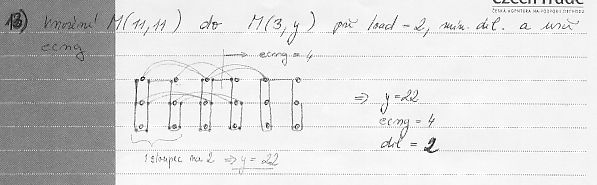 CzechTrade
ČESKÁ AGENTURA NA PODPORU OBCHODU
13) vnoření M(11,11) do M(3,y) při load=2, min. dil. a urči
ecng
→ ecng = 4
⇒ y=22
ecng = 4
dil = 2
1 sloupec na 2 ⇒ y=22